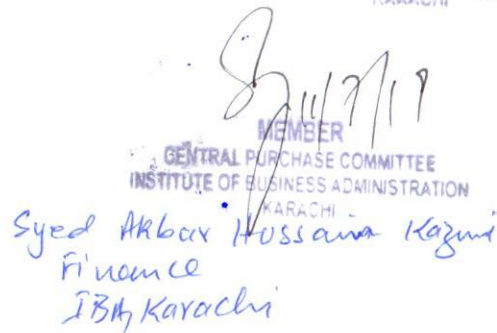 KARACHI
11/7/19
MEMBER
CENTRAL PURCHASE COMMITTEE
INSTITUTE OF BUSINESS ADMINISTRATION
KARACHI
Syed Akbar Hussain Kazmi
Finance
IBA, Karachi